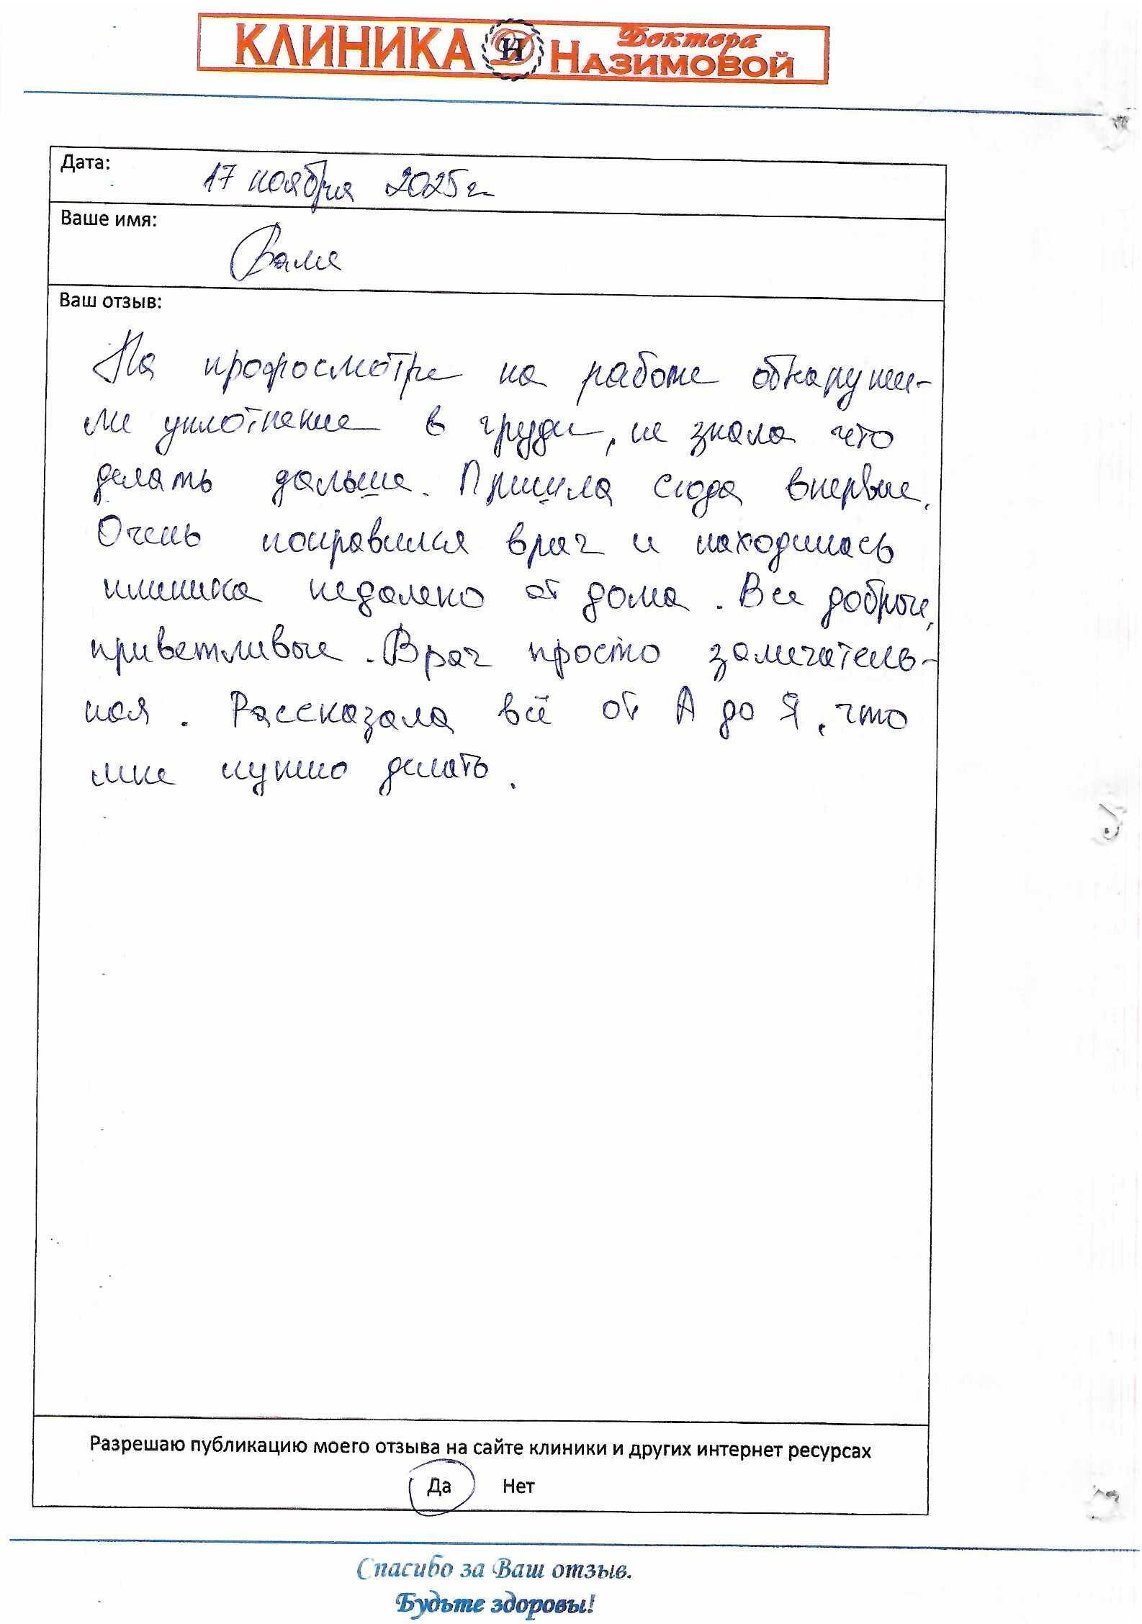 КЛИНИКА Доктора НАЗИМОВОЙ
Дата: 17 ноября 2025г
Ваше имя: Валя
Ваш отзыв:
На профосмотре на работе обнаружи-
ли уплотнение в груди, не знала что
делать дальше. Пришла сюда впервые.
Очень понравился врач и находилась
клиника недалеко от дома. Все добрые,
приветливые. Врач просто замечатель-
ная. Рассказала всё от А до Я, что
мне нужно делать.
Разрешаю публикацию моего отзыва на сайте клиники и других интернет ресурсах
Да Нет
Спасибо за Ваш отзыв.
Будьте здоровы!